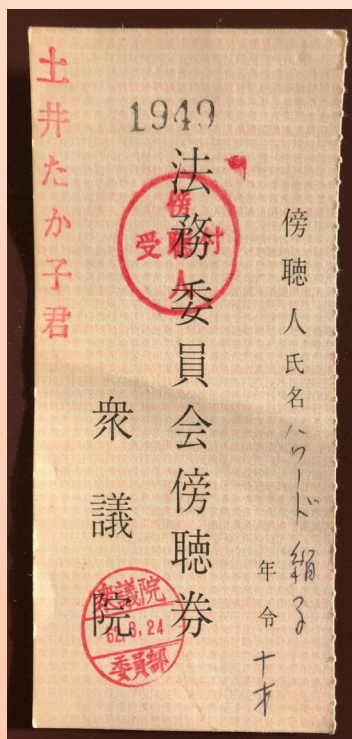 傍聴人氏名 ハワード 絹子
年令 十才
1949
法務委員会傍聴券
傍聴人
受付
衆議院
衆議院
62.8.24
委員部
土井たか子君